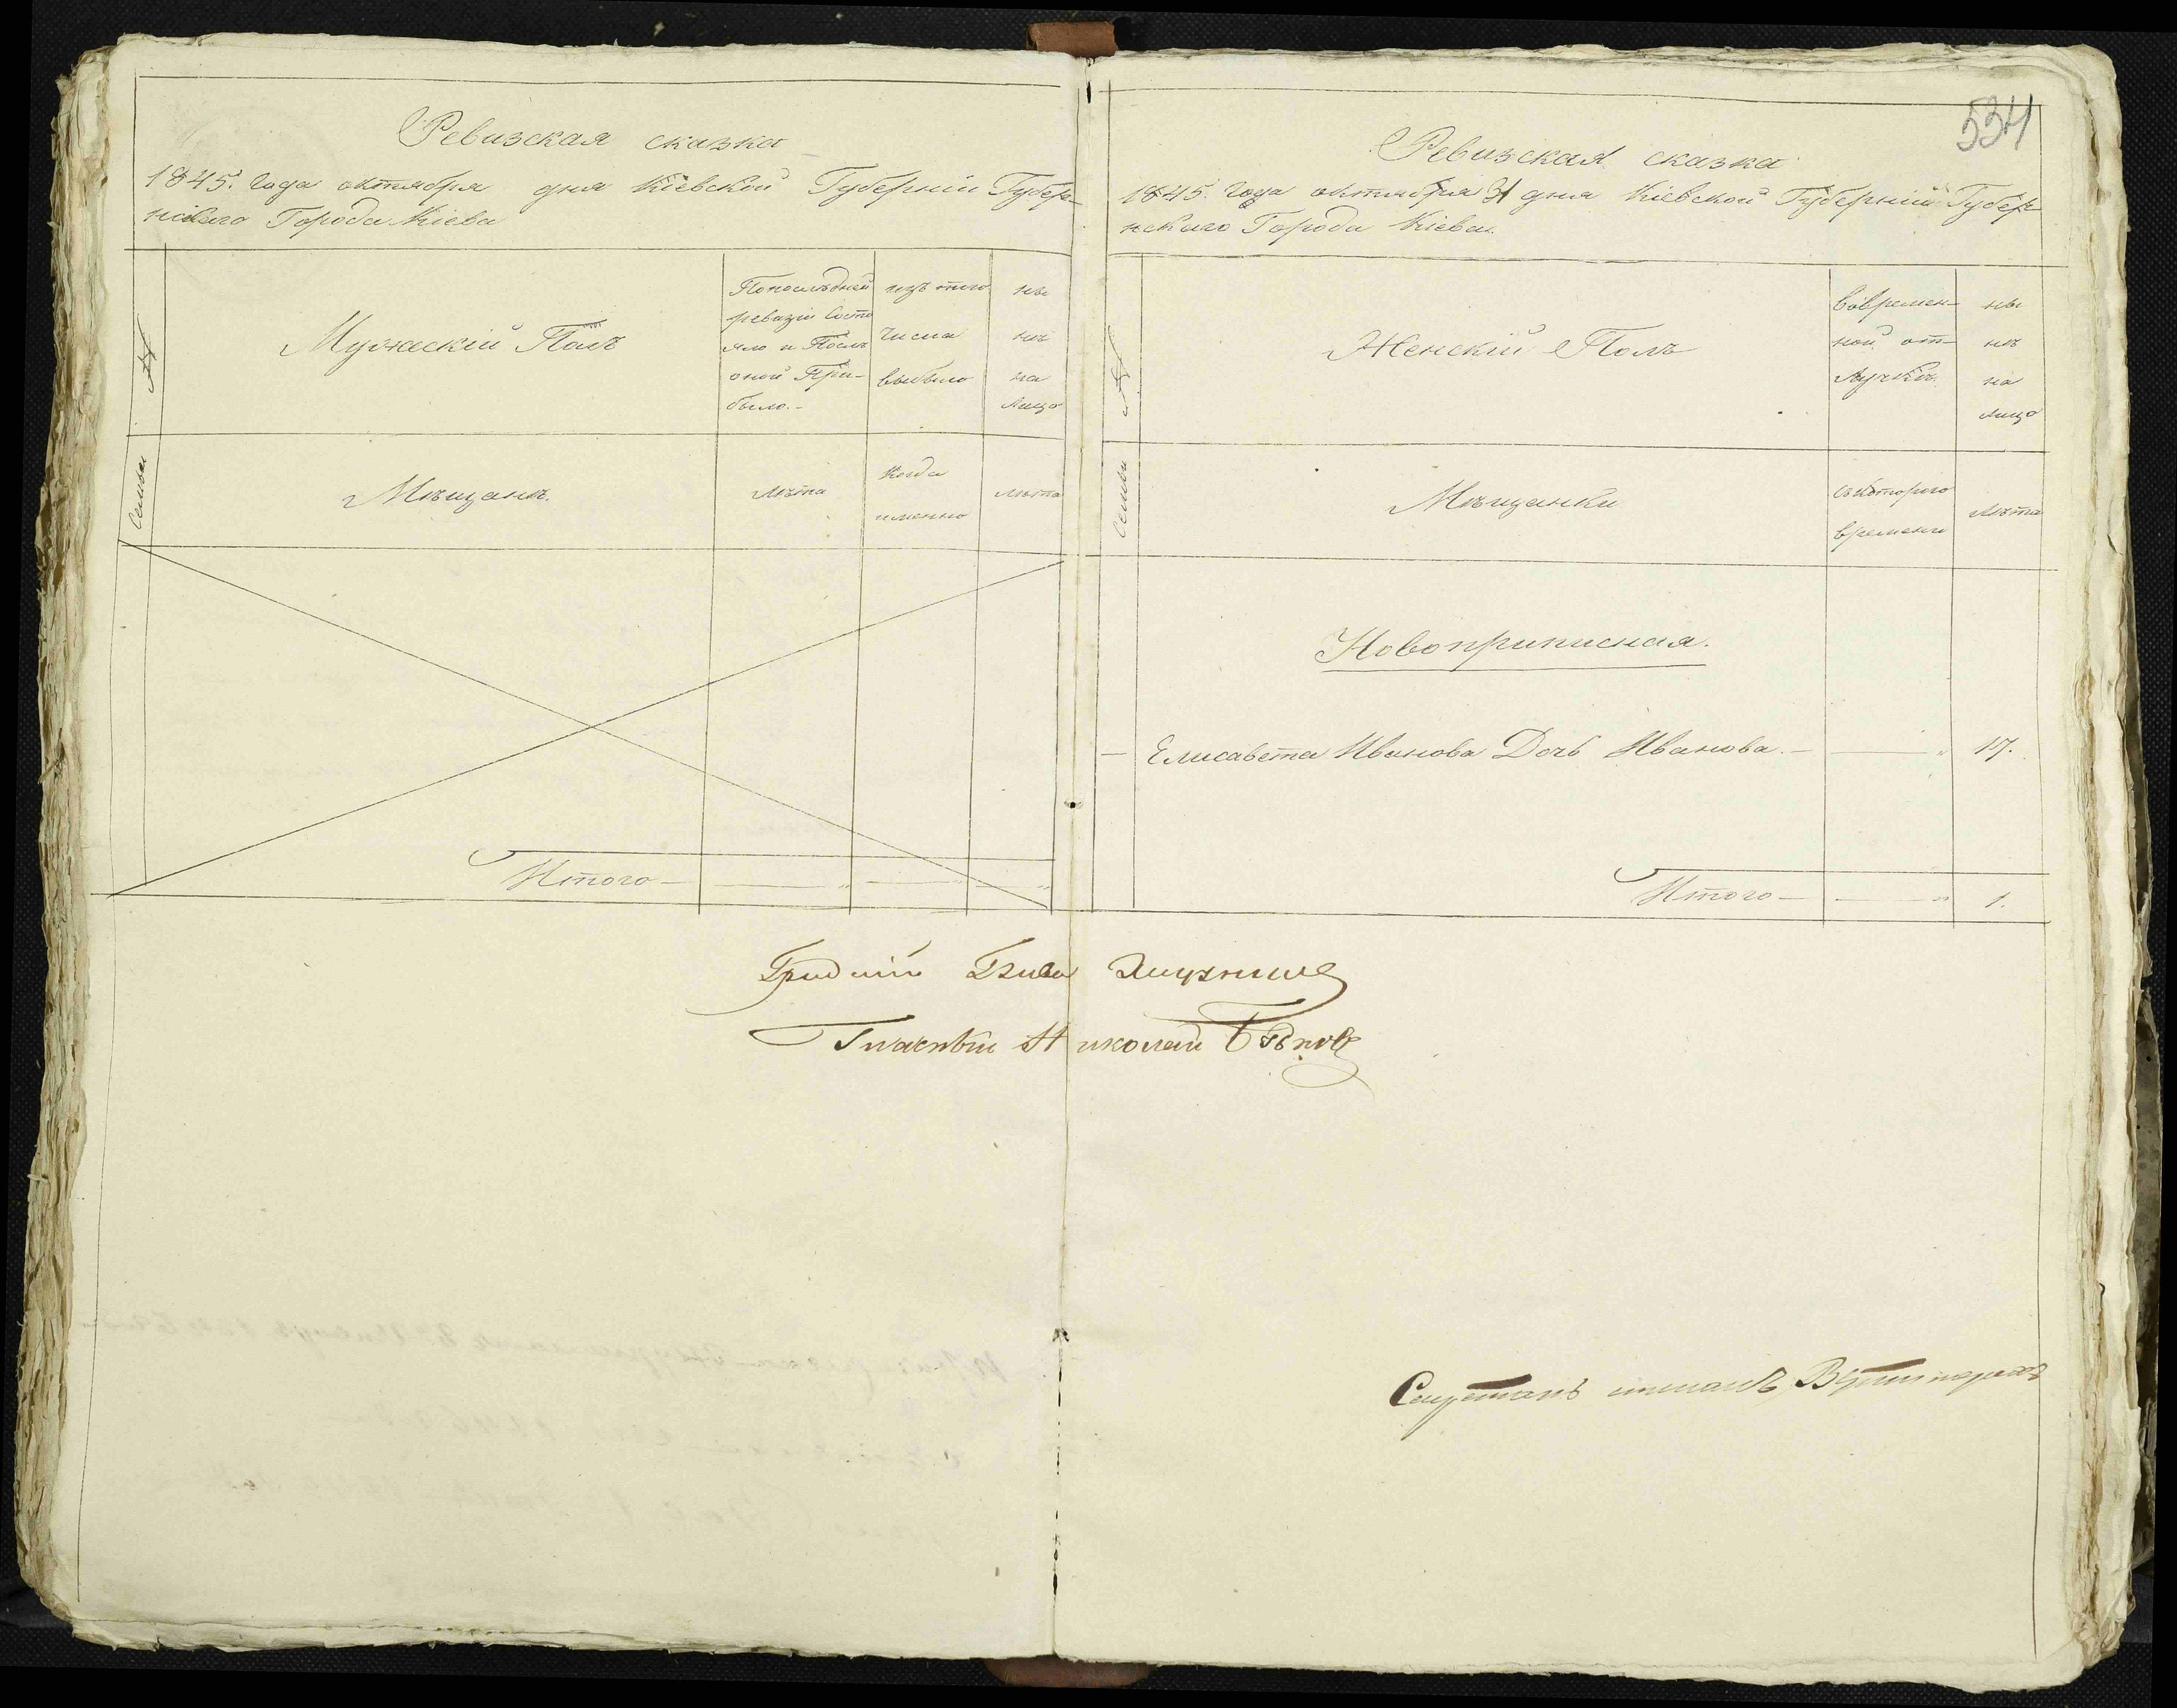 Ревизская сказка
1845. Года октября дня Кіевской Губерніи Губер-
нскаго Города Кіева
№
Мужескій Полъ
Попослѣдней
ревизіи Состо
яло и Послѣ
оной При-
было.-
изъ того
Числа
выбыло
ны
нѣ
на
лицо
Семьи
Мѣщанъ.
лѣта
Когда
именно
лѣта
Итого
534
Ревизская сказка
1845. Года октября 31 дня Кіевской Губерніи Губер-
нскаго Города Кіева.
№
Женскій Полъ
Вовремен-
ной от-
лучкѣ.
ны
нѣ
на
лицо
Семьи
Мѣщанки
Съкоторого
времени
лѣта
Новоприписная.
Елисавета Иванова Дочь Иванова. 17.
Итого 1.
Градскій Глава
Гласный Николай